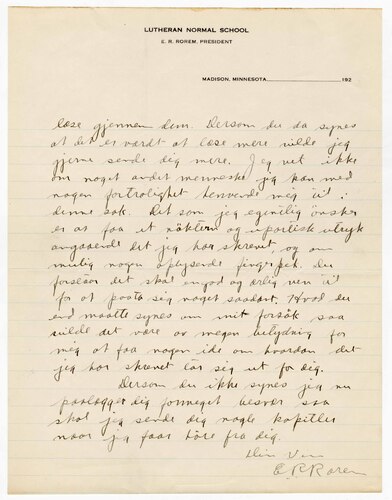 LUTHERAN NORMAL SCHOOL
E. R. ROREM, PRESIDENT
MADISON, MINNESOTA 192
læse gjennem dem. Dersom du da synes
at det er værdt at læse mere vilde jeg
gjerne sende dig mere. Jeg vet ikke
om noget andet menneske jeg kan med
nogen fortrolighet henvende mig til i
denne sak. Det som jeg egentlig ønsker
er at faa et nöktern og upartisk uttryk
angaaende det jeg har skrevet, og om
mulig nogen oplysende fingerpek. Du
forstaar det skal en god og ærlig ven til
for at paata sig noget saadant. Hvad du
end maatte synes om mit forsök saa
vilde det være av megen betydning for
mig at faa nogen ide om hvordan det
jeg har skrevet tar sig ut for dig.
Dersom du ikke synes jeg nu
paalægger dig formeget besvær saa
skal jeg sende dig nogle kapitler
naar jeg faar höre fra dig.
Din Ven
E. R. Rorem